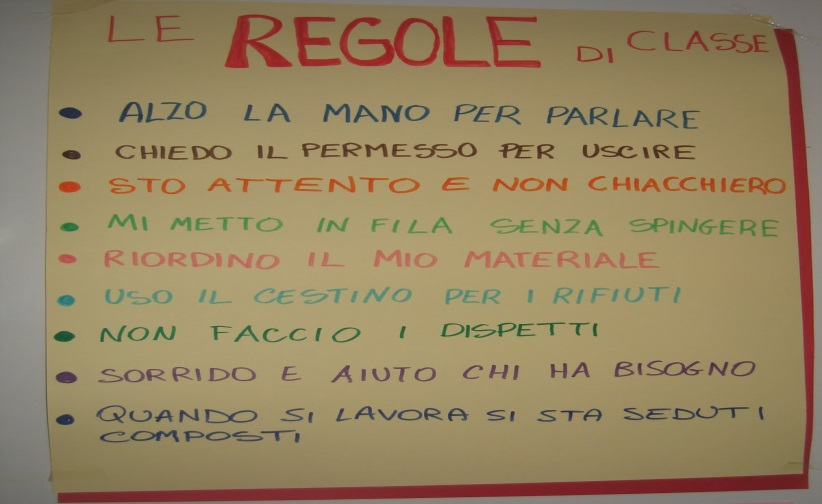 LE REGOLE DI CLASSE
• ALZO LA MANO PER PARLARE
• CHIEDO IL PERMESSO PER USCIRE
• STO ATTENTO E NON CHIACCHIERO
• MI METTO IN FILA SENZA SPINGERE
• RIORDINO IL MIO MATERIALE
• USO IL CESTINO PER I RIFIUTI
• NON FACCIO I DISPETTI
• SORRIDO E AIUTO CHI HA BISOGNO
• QUANDO SI LAVORA SI STA SEDUTI
COMPOSTI